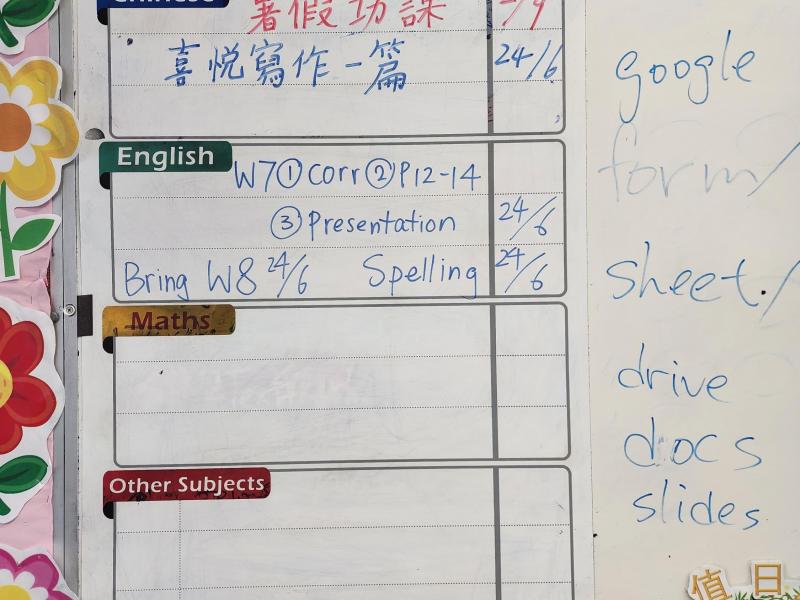 Chinese
暑假功課 2/9
喜悅寫作一篇 24/6
English
W7①Corr②P12-14
③Presentation 24/6
Bring W8 24/6 Spelling 24/6
Maths
Other Subjects
google
form/
sheet./
drive
docs
slides
值日